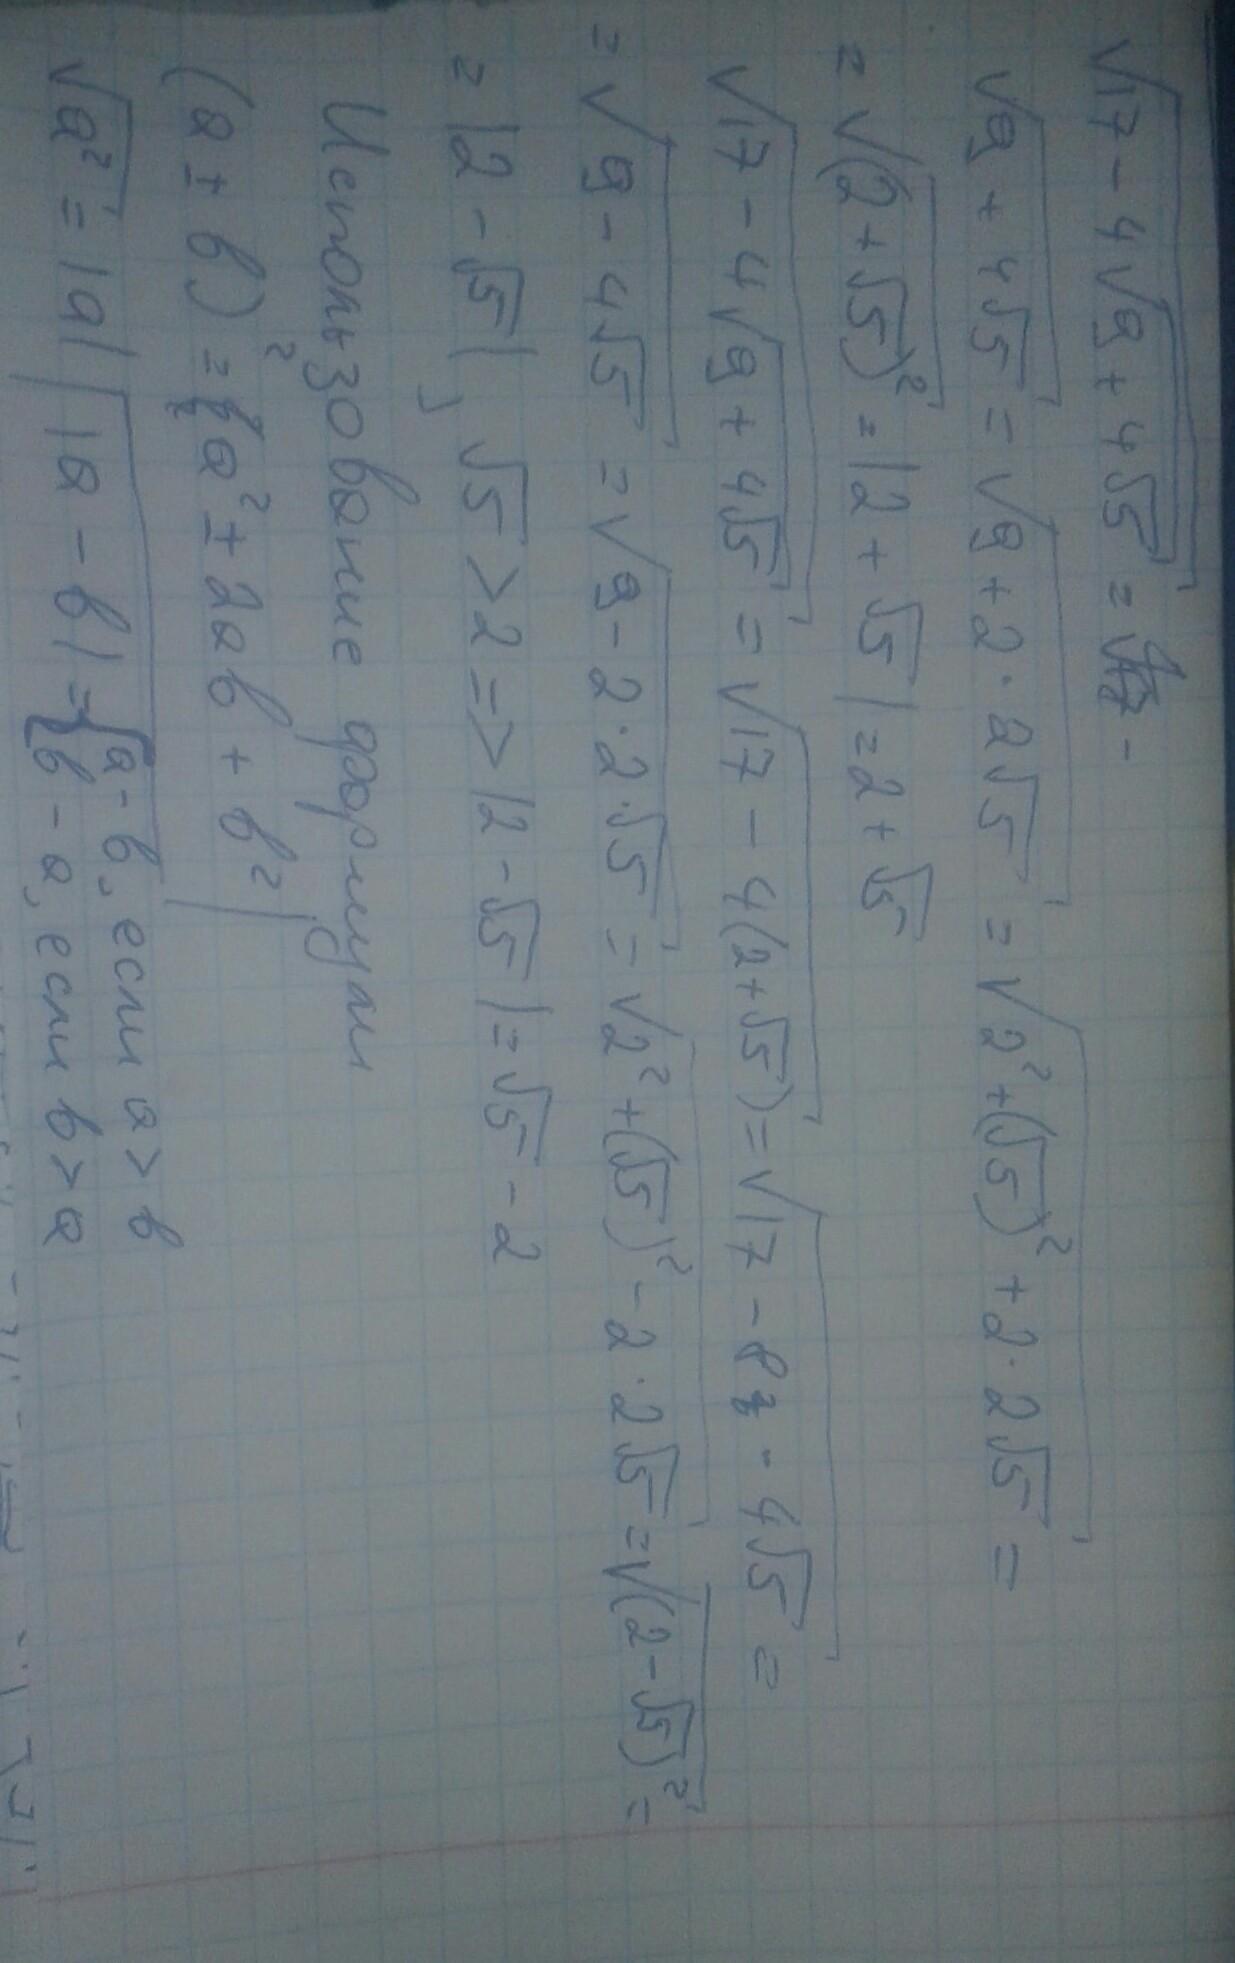 √17 - 4√9 + 4√5 = 
√9 + 4√5 = √9 + 2 · 2√5 = √2² + (√5)² + 2 · 2√5 =
= √(2 + √5)² = |2 + √5| = 2 + √5
√17 - 4√9 + 4√5 = √17 - 4(2 + √5) = √17 - 8 - 4√5 =
= √9 - 4√5 = √9 - 2 · 2 · √5 = √2² + (√5)² - 2 · 2√5 = √(2 - √5)² =
= |2 - √5|, √5 > 2 => |2 - √5| = √5 - 2
Использование формул
(a ± b)² = a² ± 2ab + b²
√a² = |a| |a - b| = { a - b, если a > b
b - a, если b > a